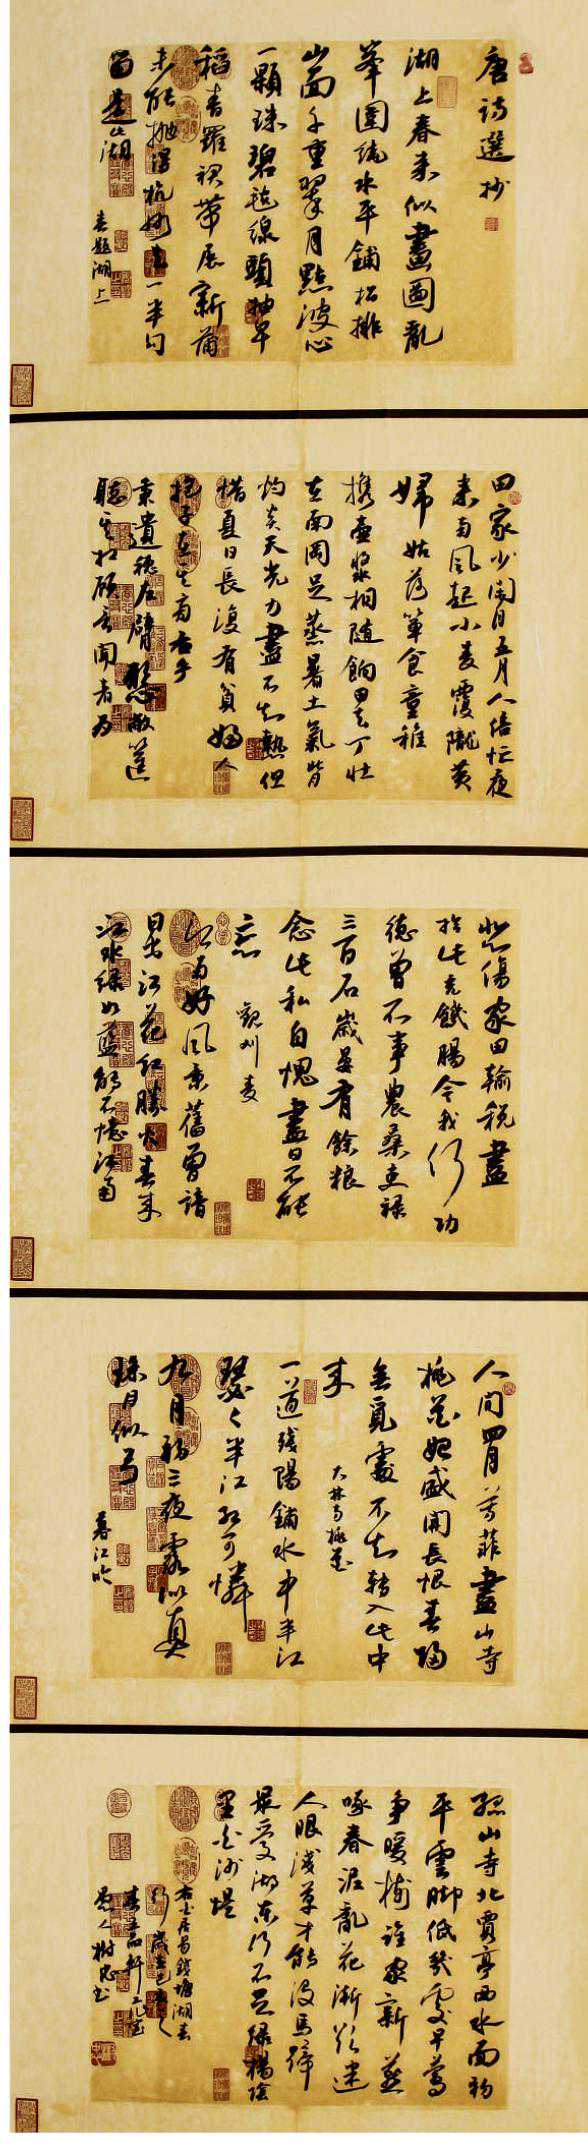 唐詩選抄
湖上春来似畫圖亂
峯圍繞水平鋪松排
山面千重翠月點波心
一顆珠碧毯線頭抽早
稻青羅裙帶展新蒲
未能抛得杭州去一半勾
留是此湖
春題湖上
田家少閑月五月人倍忙夜
来南風起小麦覆隴黄
婦姑荷箪食童稚
携壺漿相随餉田去丁壮
在南岡足蒸暑土氣背
灼炎天光力盡不知熱但
惜夏日長復有貧婦人
抱子在其旁右手
秉遺穗左臂懸敝筐
聽其相顧言聞者為
悲傷家田輸税盡
拾此充饑腸今我何功
德曾不事農桑吏禄
三百石歲晏有餘粮
念此私自愧盡日不能
忘
觀刈麦
江南好風景舊曾諳
日出江花紅勝火春来
江水緑如藍能不憶江南
人間四月芳菲盡山寺
桃花始盛開長恨春歸
無覓處不知轉入此中
来
大林寺桃花
一道殘陽鋪水中半江
瑟々半江紅可憐
九月初三夜露似真
珠月似弓
暮江吟
孤山寺北賈亭西水面初
平雲脚低幾處早鶯
争暖樹誰家新燕
啄春泥亂花漸欲迷
人眼淺草才能没馬蹄
最愛湖東行不足緑楊陰
里白沙堤
右白居易錢塘湖春
行